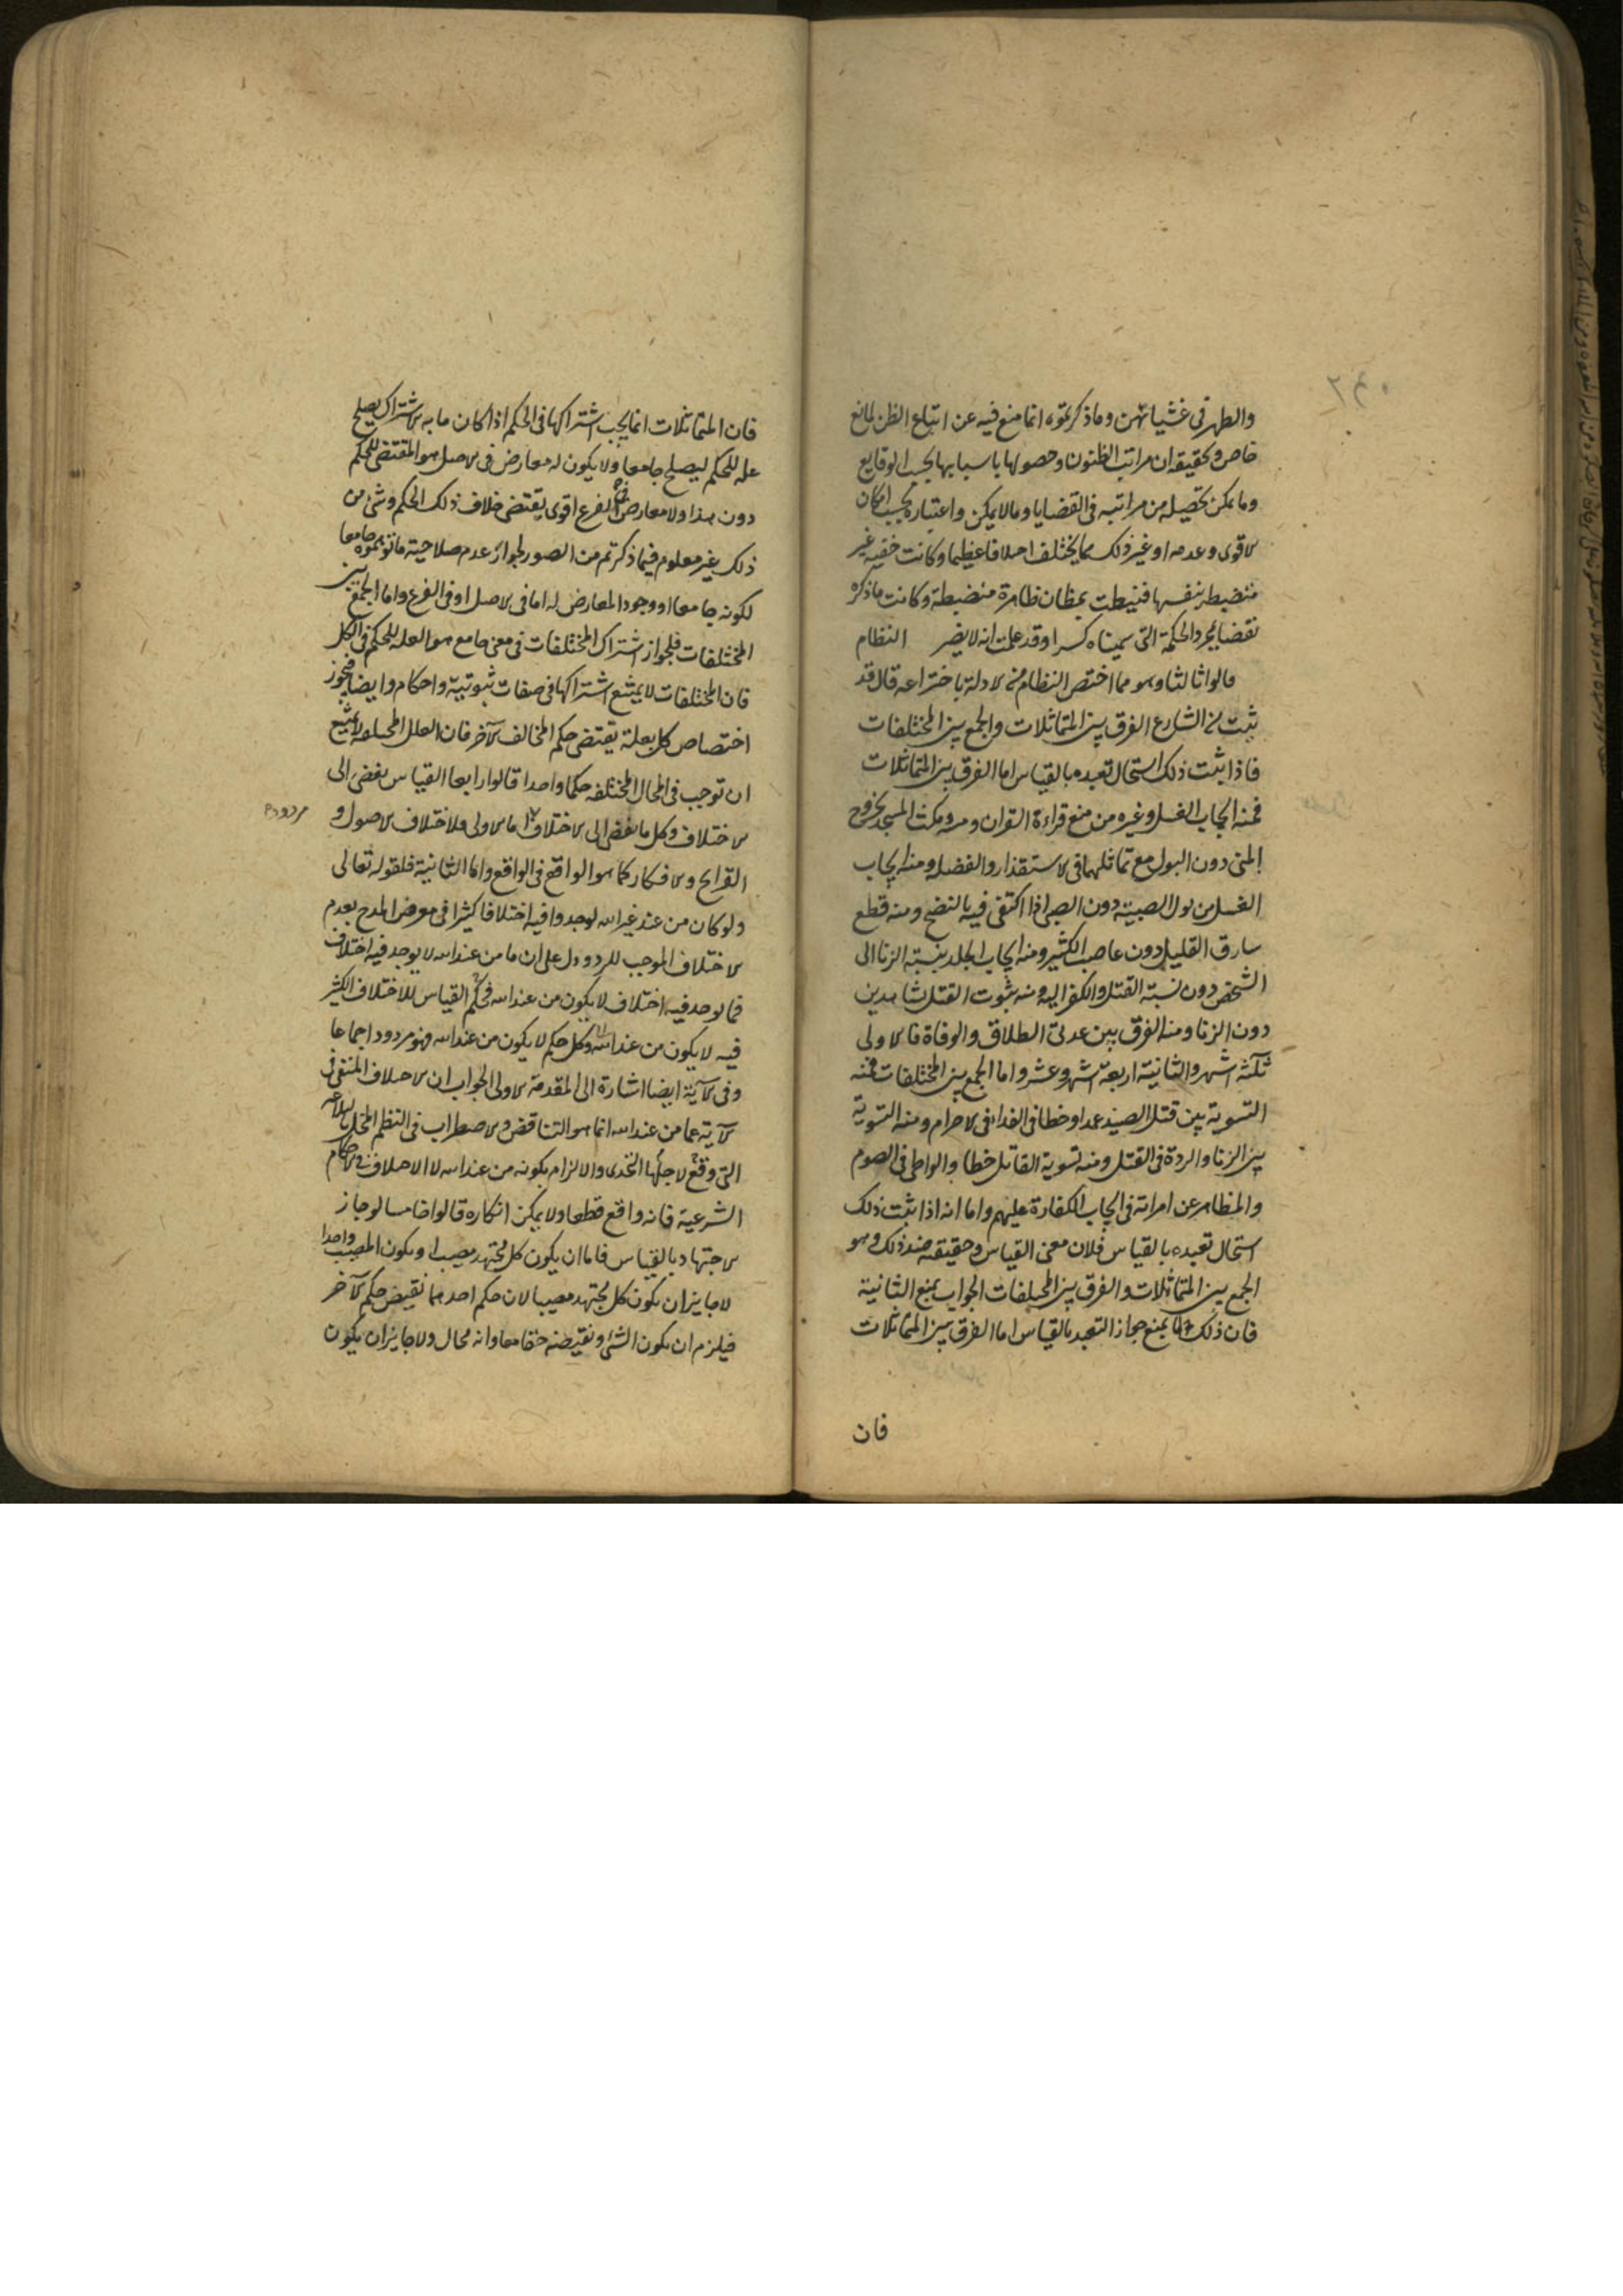 والطهر فى غشيانهن وما ذكرتموه انما منع فيه عن اتباع الظن لمانع
خاص وتحقيقه ان مراتب الظنون وحصولها باسبابها بحسب الوقايع
وما يمكن تحصيله من مراتبه فى القضايا وما لا يمكن واعتباره بحسب امكان
الاقوى وعدمه او غير ذلك مما يختلف اختلافا عظيما وكانت خفيه غير
منضبطه بنفسها فنيطت بمظان ظاهرة منضبطة وكانت ما ذكره
نقضا بمجرد الحكمة التى سميناه كسرا وقد علمت انه لا يضر النظام
قالوا ثالثا وهو مما اختص النظام من الادلة باختراعه قال قد
ثبت من الشارع الفرق بين المتماثلات والجمع بين المختلفات
فاذا ثبت ذلك استحال تعبده بالقياس اما الفرق بين المتماثلات
فمنه ايجاب الغسل وغيره من منع قراءة القران ومسه ومكث المسجد بخروج
المنى دون البول مع تماثلهما فى الاستقذار والفضله ومنه ايجاب
الغسل من بول الصبية دون الصبى اذا اكتفى فيه بالنضح ومنه قطع
سارق القليل دون غاصب الكثير ومنه ايجاب الجلد بنسبة الزنا الى
الشخص دون نسبة القتل والكفر اليه ومنه ثبوت القتل بشاهدين
دون الزنا ومنه الفرق بين عدتى الطلاق والوفاة فالاولى
ثلثة اشهر والثانية اربعة اشهر وعشر واما الجمع بين المختلفات فمنه
التسوية بين قتل الصيد عمدا وخطا فى الفدا فى الاحرام ومنه التسوية
بين الزنا والردة فى القتل ومنه تسوية القاتل خطا والواطى فى الصوم
والمظاهر عن امراته فى ايجاب الكفارة عليهم واما انه اذا ثبت ذلك
استحال تعبده بالقياس فلان معنى القياس وحقيقته ضد ذلك وهو
الجمع بين المتماثلات والفرق بين المختلفات الجواب بمنع الثانية
فان ذلك لا يمنع جواز التعبد بالقياس اما الفرق بين المتماثلات
فان
فان المتماثلات انما يجب اشتراكها فى الحكم اذا كان ما به الاشتراك يصلح
عله للحكم ليصلح جامعا ولا يكون له معارض فى الاصل هو المقتضى للحكم
دون هذا ولا معارض فى الفرع اقوى يقتضى خلاف ذلك الحكم وشئ من
ذلك غير معلوم فيما ذكرتم من الصور لجواز عدم صلاحية ما توهموه جامعا
لكونه جامعا او وجود المعارض له اما فى الاصل او فى الفرع واما الجمع بين
المختلفات فلجواز اشتراك المختلفات فى معنى جامع هو العله للحكم فى الكل
فان المختلفات لا يمتنع اشتراكها فى صفات ثبوتية واحكام وايضا فيجوز
اختصاص كل بعلة يقتضى حكم المخالف الآخر فان العلل المختلفه لا يمتنع
ان توجب فى المحال المختلفه حكما واحدا قالوا رابعا القياس يفضى الى
الاختلاف وكل ما يفضى الى الاختلاف اما الاولى فلاختلاف الاصول و
مردود
القرائح والافكار كما هو الواقع فى الواقع واما الثانية فلقوله تعالى
ولو كان من عند غير الله لوجدوا فيه اختلافا كثيرا فى معرض المدح بعدم
الاختلاف الموجب للرد ودل على ان ما من عند الله لا يوجد فيه اختلاف
فما يوجد فيه اختلاف لا يكون من عند الله فحكم القياس للاختلاف الكثير
فيه لا يكون من عند الله وكل حكم لا يكون من عند الله فهو مردود اجماعا
وفى الآية ايضا اشارة الى المقدمة الاولى الجواب ان الاختلاف المنفى فى
الآية عما من عند الله انما هو التناقض والاضطراب فى النظم المخل بالبلاغه
التى وقع لاجلها التحدى والالزام بكونه من عند الله لا الاختلاف فى الاحكام
الشرعية فانه واقع قطعا ولا يمكن انكاره قالوا خامسا لو جاز
الاجتهاد بالقياس فاما ان يكون كل مجتهد مصيبا او يكون المصيب واحدا
لا جايز ان يكون كل مجتهد مصيبا لان حكم احدهما نقيض حكم الآخر
فيلزم ان يكون الشئ ونقيضه حقا معا وانه محال ولا جايز ان يكون